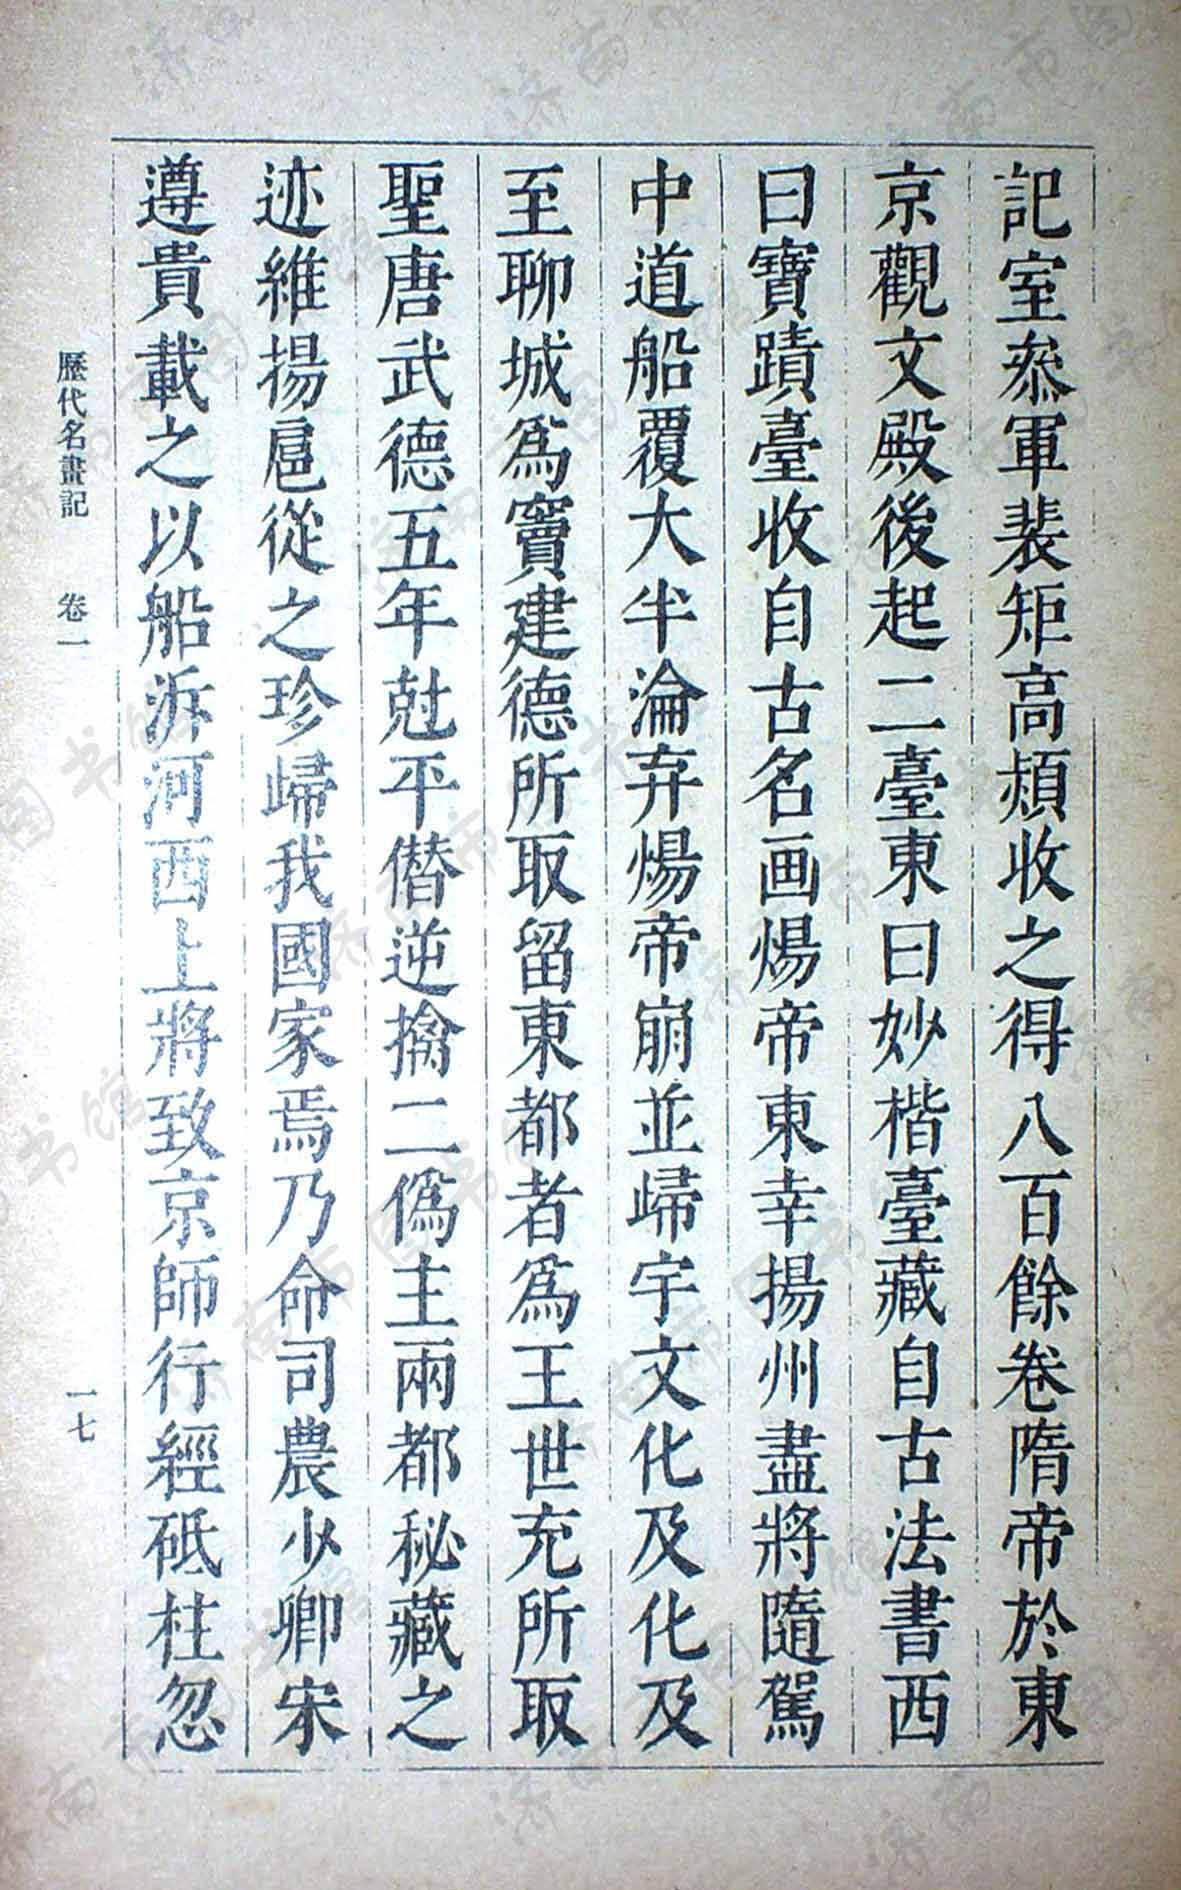 記室叅軍裴矩高熲收之得八百餘卷隋帝於東
京觀文殿後起二臺東曰妙楷臺藏自古法書西
曰寶蹟臺收自古名画煬帝東幸揚州盡將隨駕
中道船覆大半淪弃煬帝崩並歸宇文化及化及
至聊城爲竇建德所取留東都者爲王世充所取
聖唐武德五年尅平僭逆擒二僞主兩都秘藏之
迹維揚扈從之珍歸我國家焉乃命司農少卿宋
遵貴載之以船泝河西上將致京師行經砥柱忽
歷代名畫記 卷一 一七
济南市图书馆